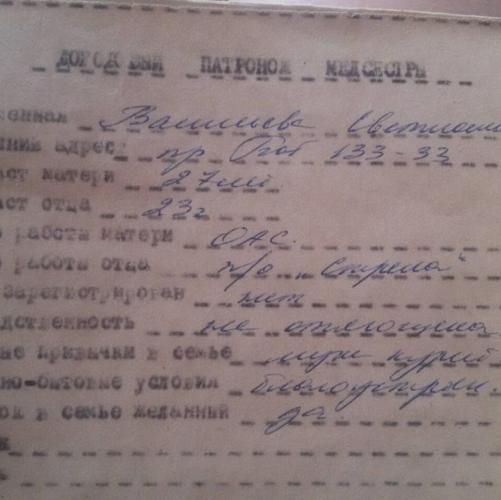 ДОРОДОВЫЙ ПАТРОНАЖ МЕДСЕСТРЫ
менная Васильева Светлана
ний адрес: пр. 133-33
аст матери 27 лет
аст отца 23 г
работа матери ОАС.
работа отца п/о „Стрела"
зарегистрирован нет
дственность не отягощена
ые привычки в семье муж курит
но-бытовые условия благоустроен
ок в семье желанный да.